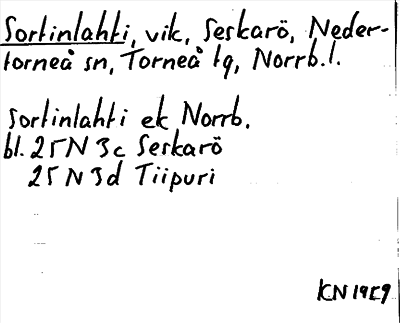 Sortinlahti, vik, Seskarö, Neder-
torneå sn, Torneå tg, Norrb.l.
Sortinlahti ek Norrb.
bl. 25N 3c Seskarö
25N 3d Tiipuri
KN 1959